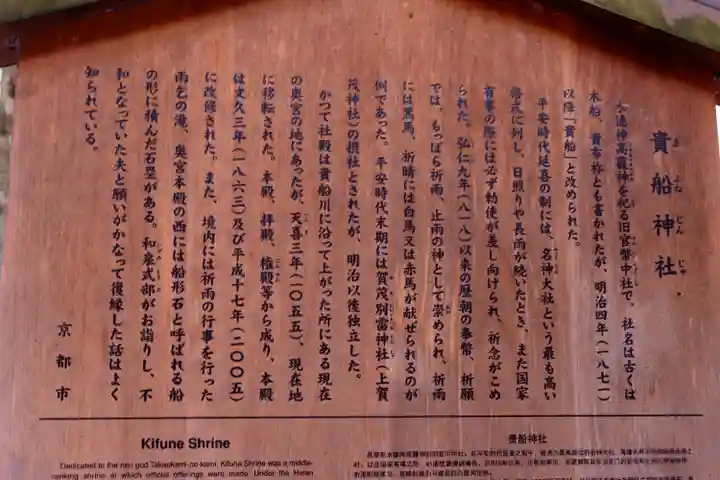 貴船神社
きふねじんじゃ
水徳神高龗神を祀る旧官幣中社で、社名は古くは
木船、貴布祢とも書かれたが、明治四年(一八七一)
以降「貴船」と改められた。
平安時代延喜の制には、名神大社という最も高い
格式に列し、日照りや長雨が続いたとき、また国家
有事の際には必ず勅使が差し向けられ、祈念がこめ
られた。弘仁九年(八一八)以来の歴朝の奉幣、祈願
では、もっぱら祈雨、止雨の神として崇められ、祈雨
には黒馬、祈晴には白馬又は赤馬が献ぜられるのが
例であった。平安時代末期には賀茂別雷神社(上賀
茂神社)の摂社とされたが、明治以後独立した。
かつて社殿は貴船川に沿って上がった所にある現在
の奥宮の地にあったが、天喜三年(一〇五五)、現在地
に移転された。本殿、拝殿、権殿等から成り、本殿
は文久三年(一八六三)及び平成十七年(二〇〇五)
に改修された。また、境内には祈雨の行事を行った
雨乞の滝、奥宮本殿の西には船形石と呼ばれる船
の形に積んだ石塁がある。和泉式部がお詣りし、不
和となっていた夫と願いがかなって復縁した話はよく
知られている。
京都市
Kifune Shrine
Dedicated to the rain god Takaokami-no-kami, Kifune Shrine was a middle-
ranking shrine at which official offerings were made. Under the Heian
贵船神社